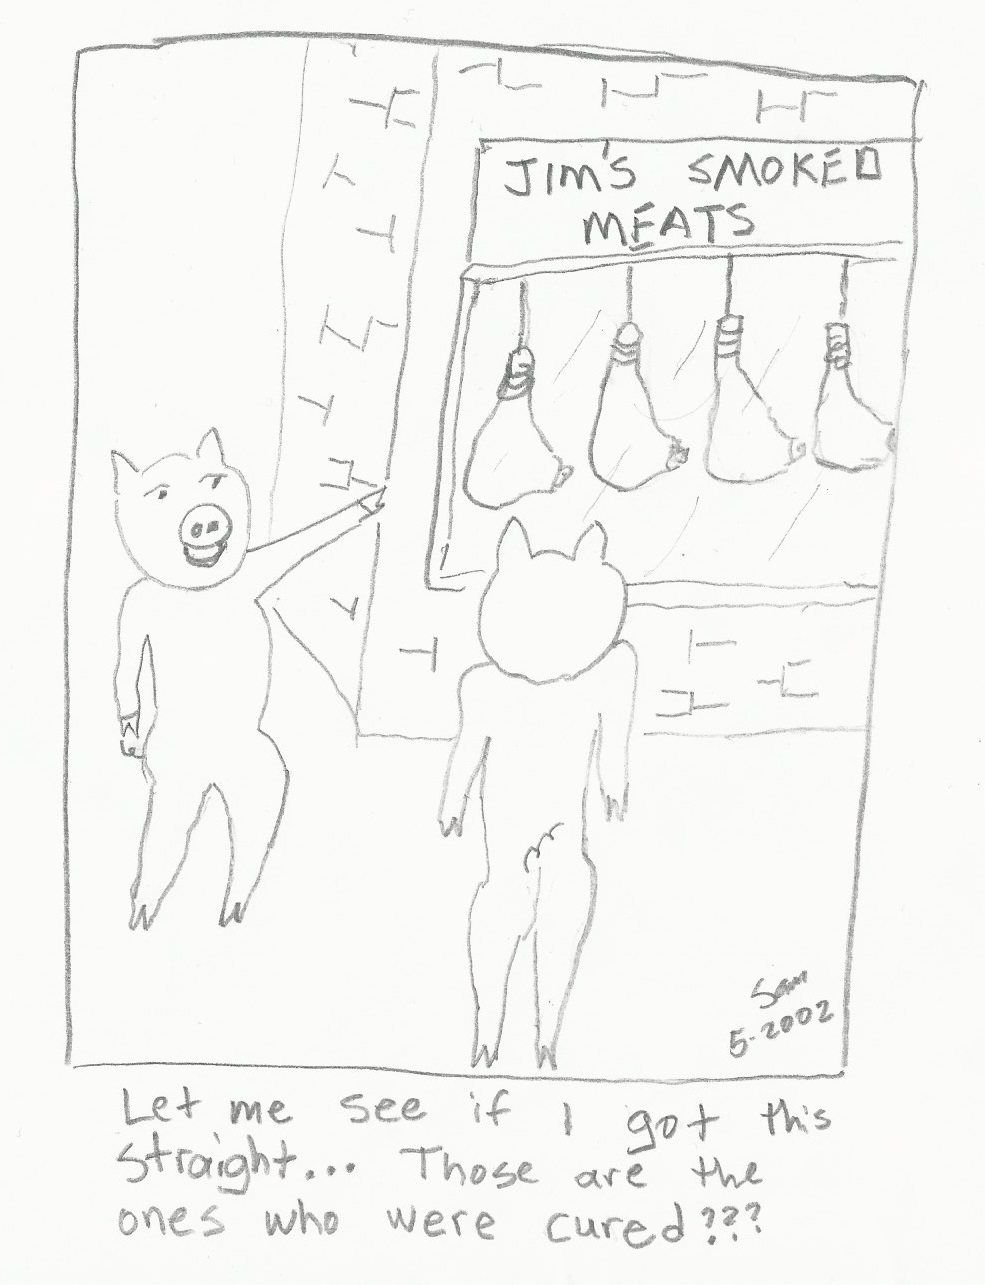 JIM'S SMOKED
MEATS
Sam
5-2002
Let me see if I got this
straight... Those are the
ones who were cured???